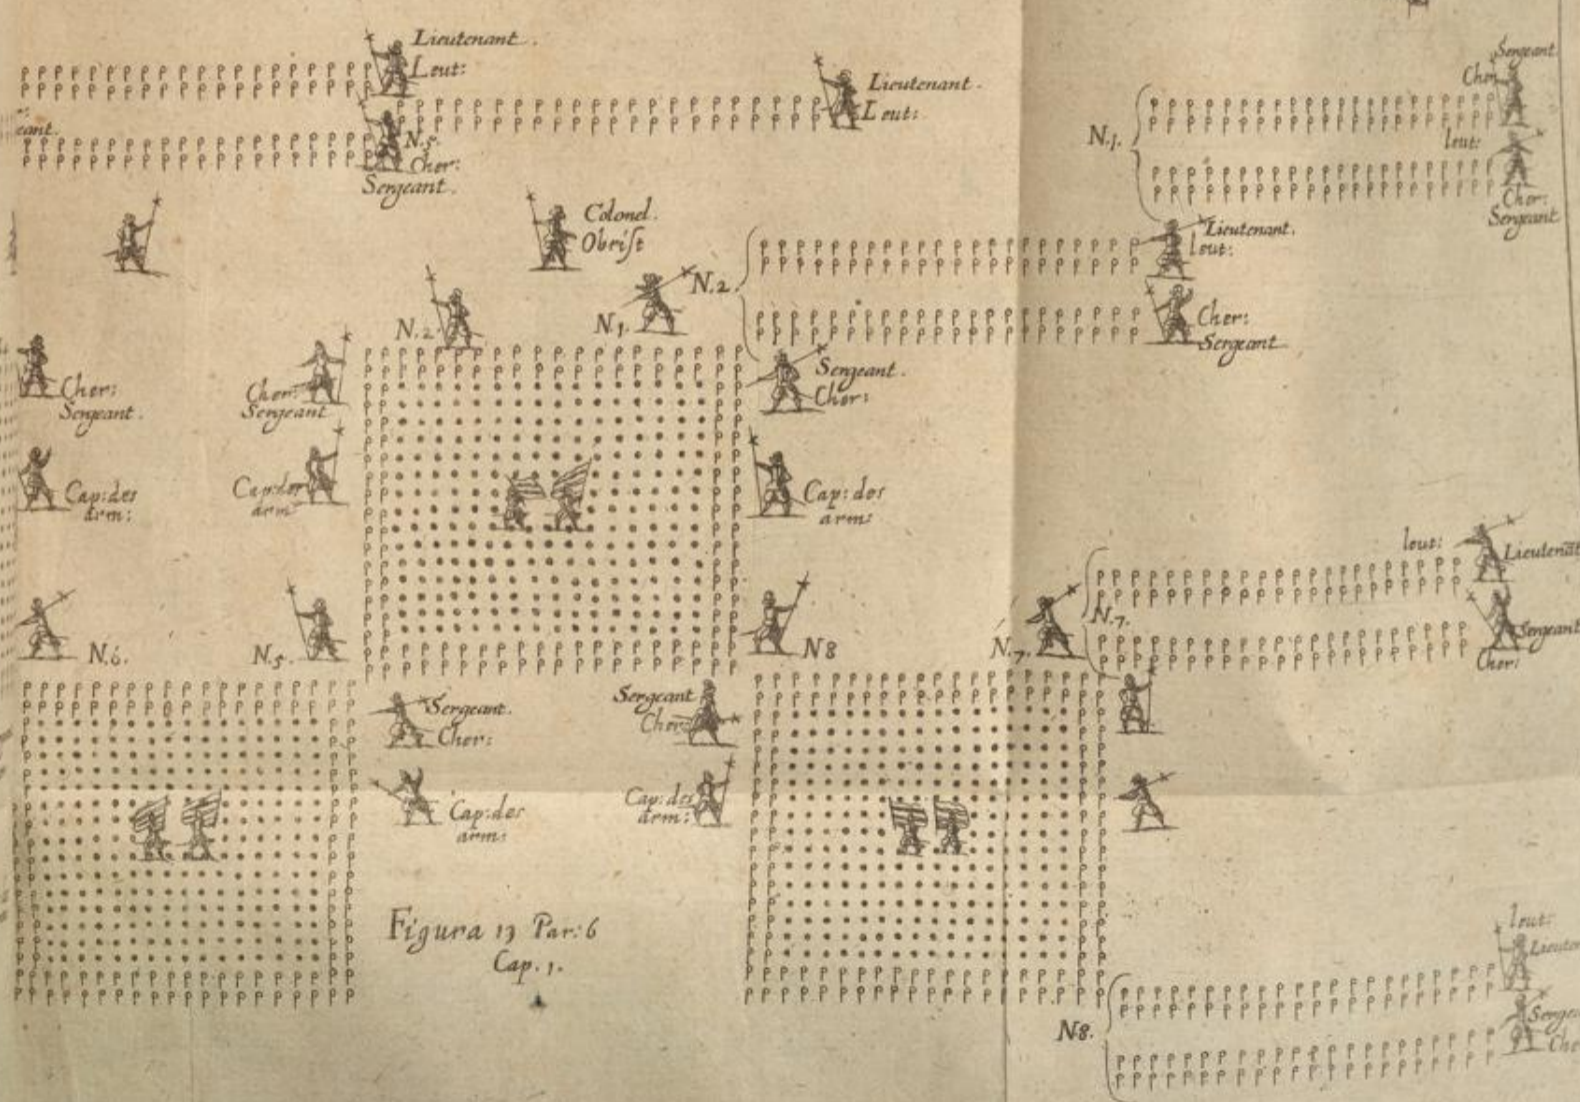 Lieutenant.
Leut:
Lieutenant.
Leut:
Sergeant
Cher
N.1.
leut:
Cher:
Sergeant
eant.
N.5.
Cher:
Sergeant.
Colonel.
Obrist
Lieutenant.
leut:
N.2.
N.2
N.1.
Cher:
Sergeant
Cher:
Sergeant.
Cher:
Sergeant
Sergeant.
Cher:
Cap: des
arm:
Cap: des
arm
Cap: des
arm:
leut:
Lieutenāt
N.7.
Sergeant
Cher:
N.6.
N.5.
N8
N.7.
Sergeant.
Cher:
Sergeant
Cher
Cap: des
arm:
Cap: des
arm:
Figura 13 Par: 6
Cap. 1.
leut:
Lieuten
N8.
Serge
Che